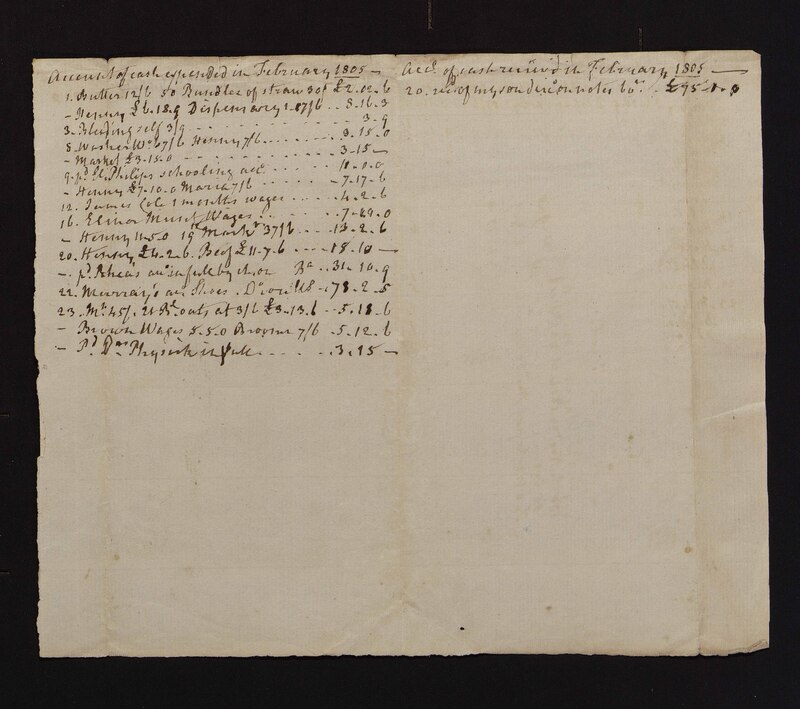 Account of cash expended in February 1805 —
1. Butter 12/6 50 Bundles of straw 30/ £2.02.6
- Henery £6.18.9 Dispensarey 1.17/6 .. 8.16.3
3. Bleeding self 3/9 . . . . . . 3.9
8. Washer Wn 67/6 Henny 7/6 . . . 3.15.0
- Market £3.15.0 . . . . . 3.15 —
9. pd El. Philips schooling acct . . . 10.0.0
- Henny £7.10.0 Maria 7/6 . . . . 7.17.6
12. James Cole 1 months wages . . . . 4.2.6
16. Elinor Wages . . . . 7.0
- Henny 11.5.0 19th Markt 37/6 . . . 13.2.6
20. Henny £6.2.6. Beef £11.7.6 . . . 18.10 —
-. pd acct in full by ch. on Ba . . 31.10.9
22. Murray's acct Shoes . Do on US - 78.2.5
23. Mr 45/. 21 Bl oats at 3/6 £3.13.6 . . 5.18.6
- Brown Wages 5.5.0 Brooms 7/6 . 5.12.6
- Pd Dr Physick in full . . . . . 3.15 —
Acct of cash receiv'd in February 1805 —
20. recd of my son notes £95.0.0